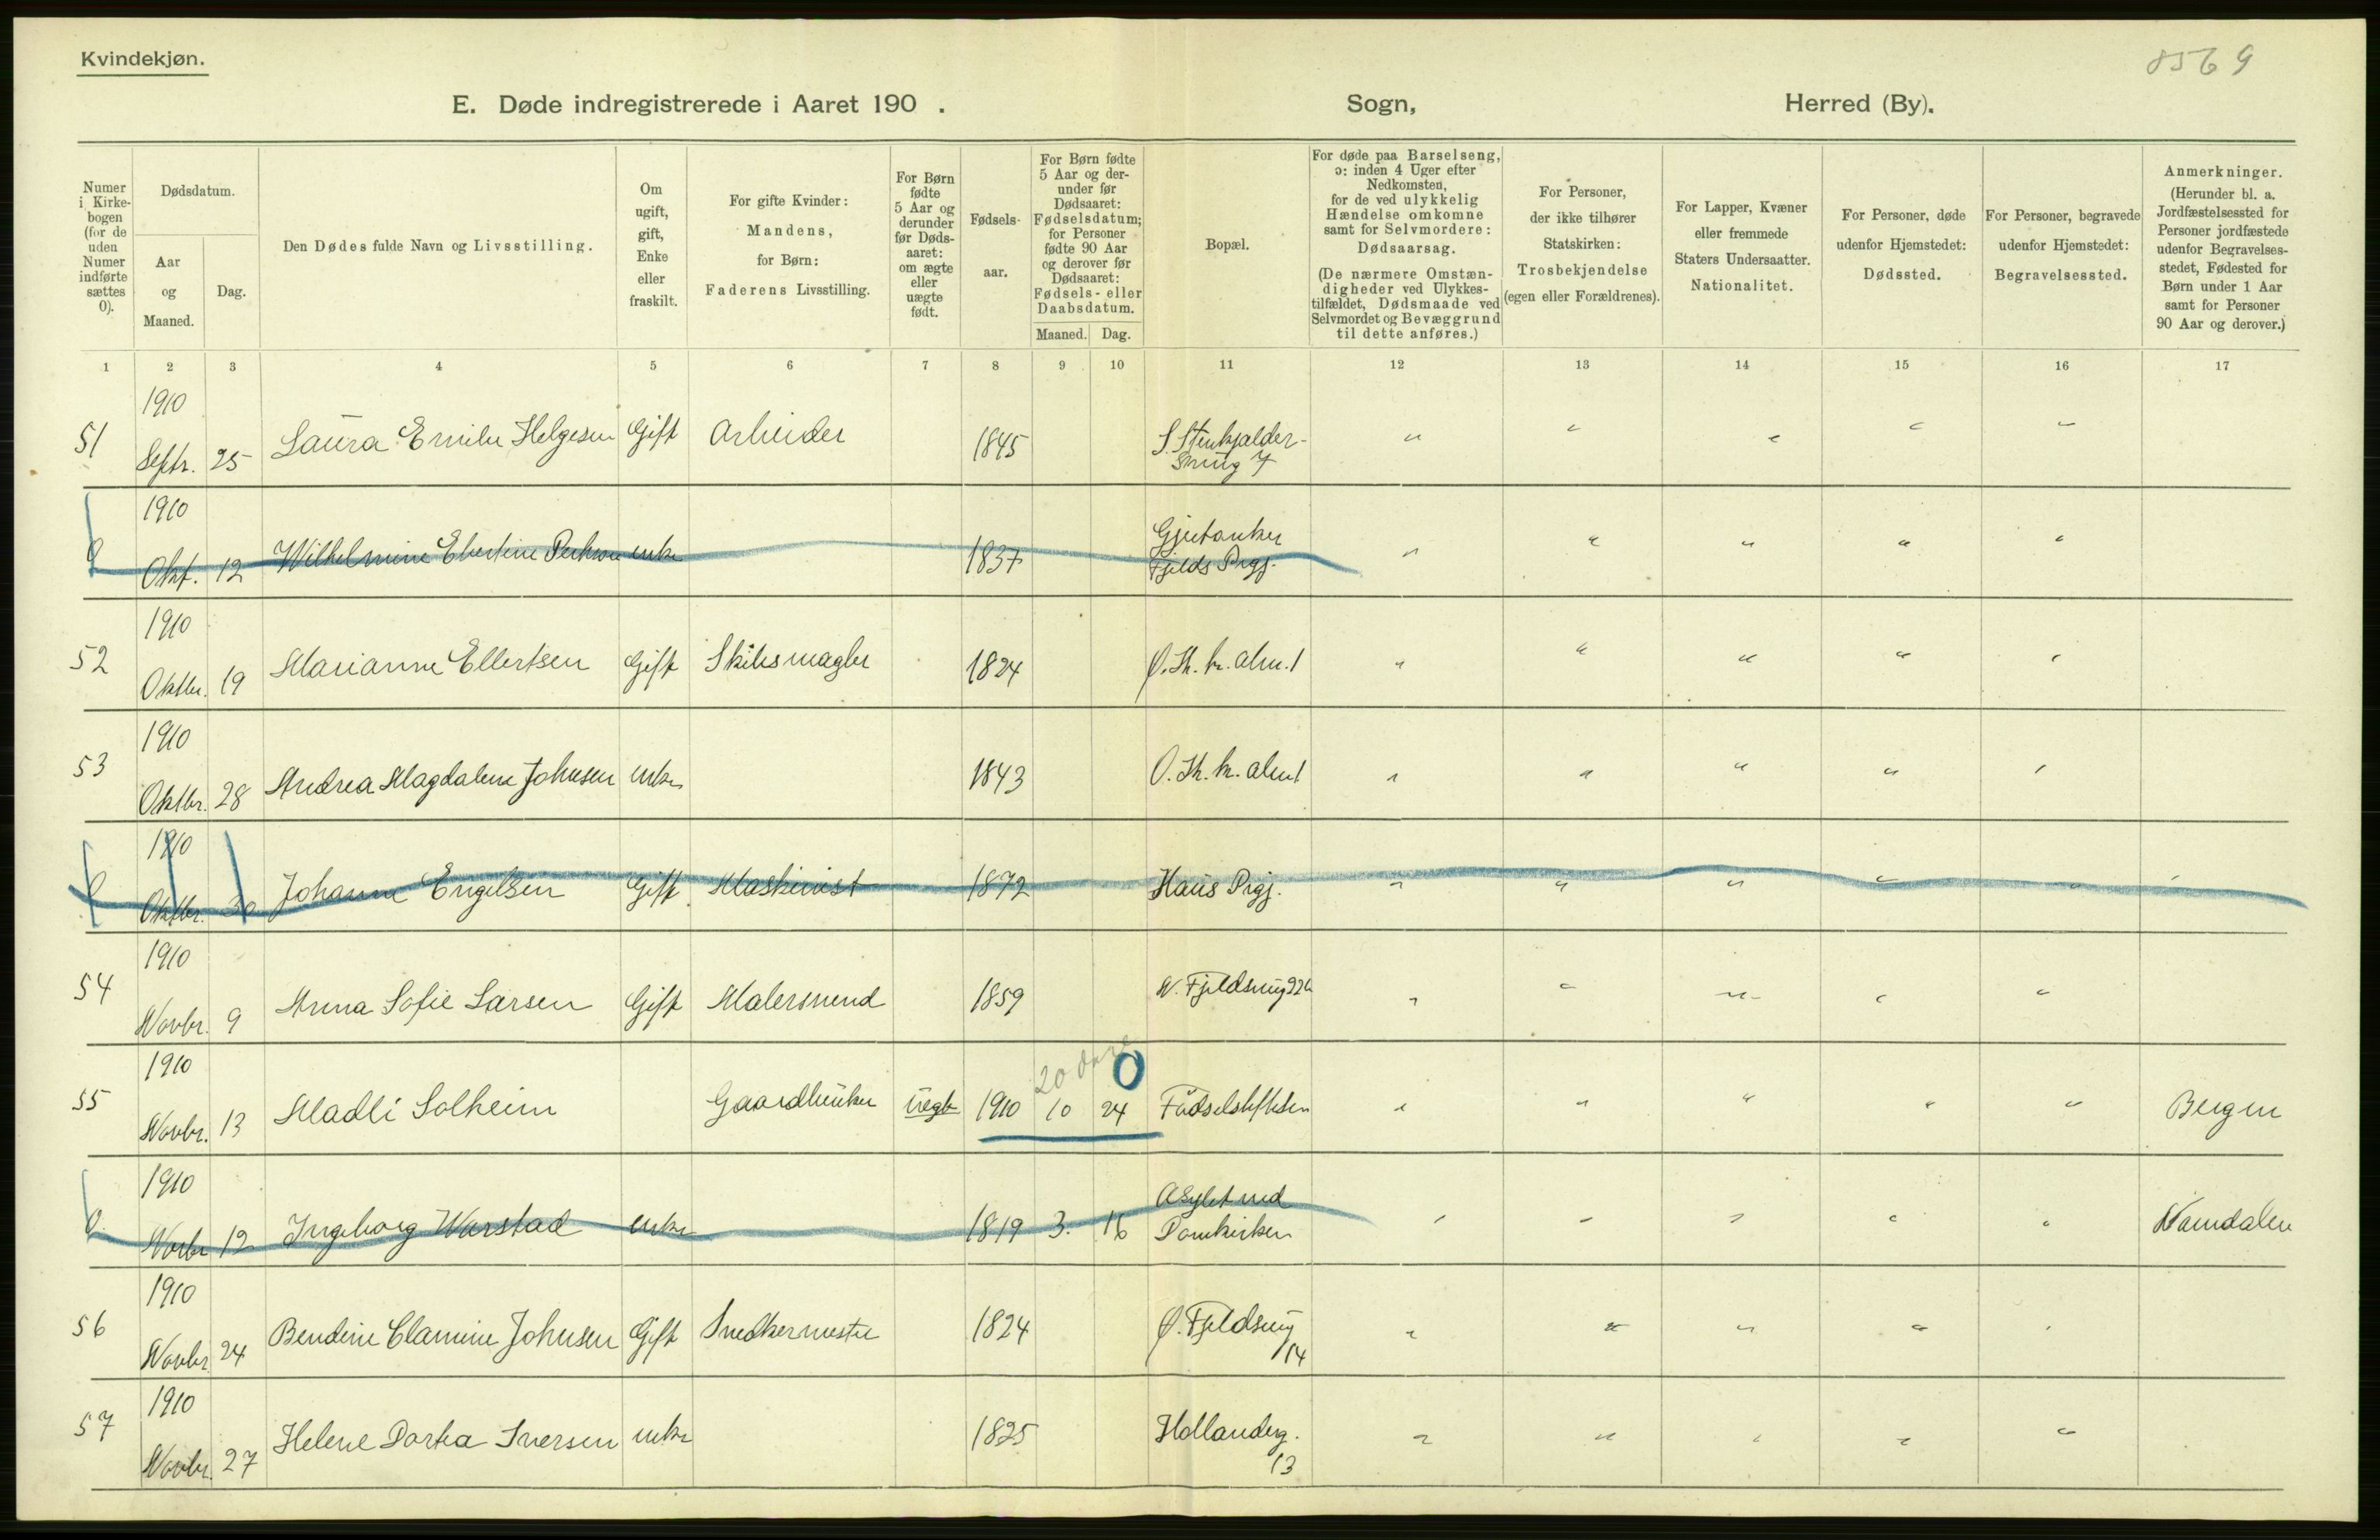 Kvindekjøn.
8569
E. Døde indregistrerede i Aaret 190 . Sogn, Herred (By).
Numer i Kirkebogen (for de uden Numer indførte sættes 0).
Dødsdatum.
Aar og Maaned.
Dag.
Den Dødes fulde Navn og Livsstilling.
Om ugift, gift, Enke eller fraskilt.
For gifte Kvinder: Mandens, for Børn: Faderens Livsstilling.
For Børn fødte 5 Aar og derunder før Dødsaaret: om ægte eller uægte født.
Fødselsaar.
For Børn fødte 5 Aar og derunder før Dødsaaret: Fødselsdatum; for Personer fødte 90 Aar og derover før Dødsaaret: Fødsels- eller Daabsdatum.
Maaned. Dag.
Bopæl.
For døde paa Barselseng, ɔ: inden 4 Uger efter Nedkomsten, for de ved ulykkelig Hændelse omkomne samt for Selvmordere: Dødsaarsag.
(De nærmere Omstændigheder ved Ulykkestilfældet, Dødsmaade ved Selvmordet og Bevæggrund til dette anføres.)
For Personer, der ikke tilhører Statskirken: Trosbekjendelse (egen eller Forældrenes).
For Lapper, Kvæner eller fremmede Staters Undersaatter. Nationalitet.
For Personer, døde udenfor Hjemstedet: Dødssted.
For Personer, begravede udenfor Hjemstedet: Begravelsessted.
Anmerkninger. (Herunder bl. a. Jordfæstelsessted for Personer jordfæstede udenfor Begravelsesstedet, Fødested for Børn under 1 Aar samt for Personer 90 Aar og derover.)
1 2 3 4 5 6 7 8 9 10 11 12 13 14 15 16 17
1910
51 Septr. 25 Laura Emilie Helgesen Gift Arbeider 1845 S. Stenkjelder-
smug 7
1910
0 Okt. 12 Wilhelmine enke 1837 Gjeitanker
Fjelds Prgj.
1910
52 Oktbr. 19 Marianne Ellertsen Gift Skibsmægler 1824 Ø. Sk. kr. alm. 1
1910
53 Oktbr. 28 Andrea Magdalene Johnsen enke 1843 Ø. Sk. kr. alm 1
1910
0 Oktbr. 30 Johanne Engelsen Gift Maskinist 1872 Haus Prgj.
1910
54 Novbr. 9 Anna Sofie Larsen Gift Malersvend 1859 N. Fjeldsmug 22b
1910 20 dage 0
55 Novbr. 13 Madli Solheim Gaardbruker uegte 1910 10 24 Fødselsstiftelsen Bergen
1910
0 Novbr 12 Ingeborg Warstad enke 1819 3. 16 Asylet ved
Domkirken Namdalen
1910
56 Novbr 24 Bendine Clamine Johnsen Gift Snedkermester 1824 Ø. Fjeldsmug
14
1910
57 Novbr. 27 Helene Dortea Iversen enke 1825 Hollanderg.
13